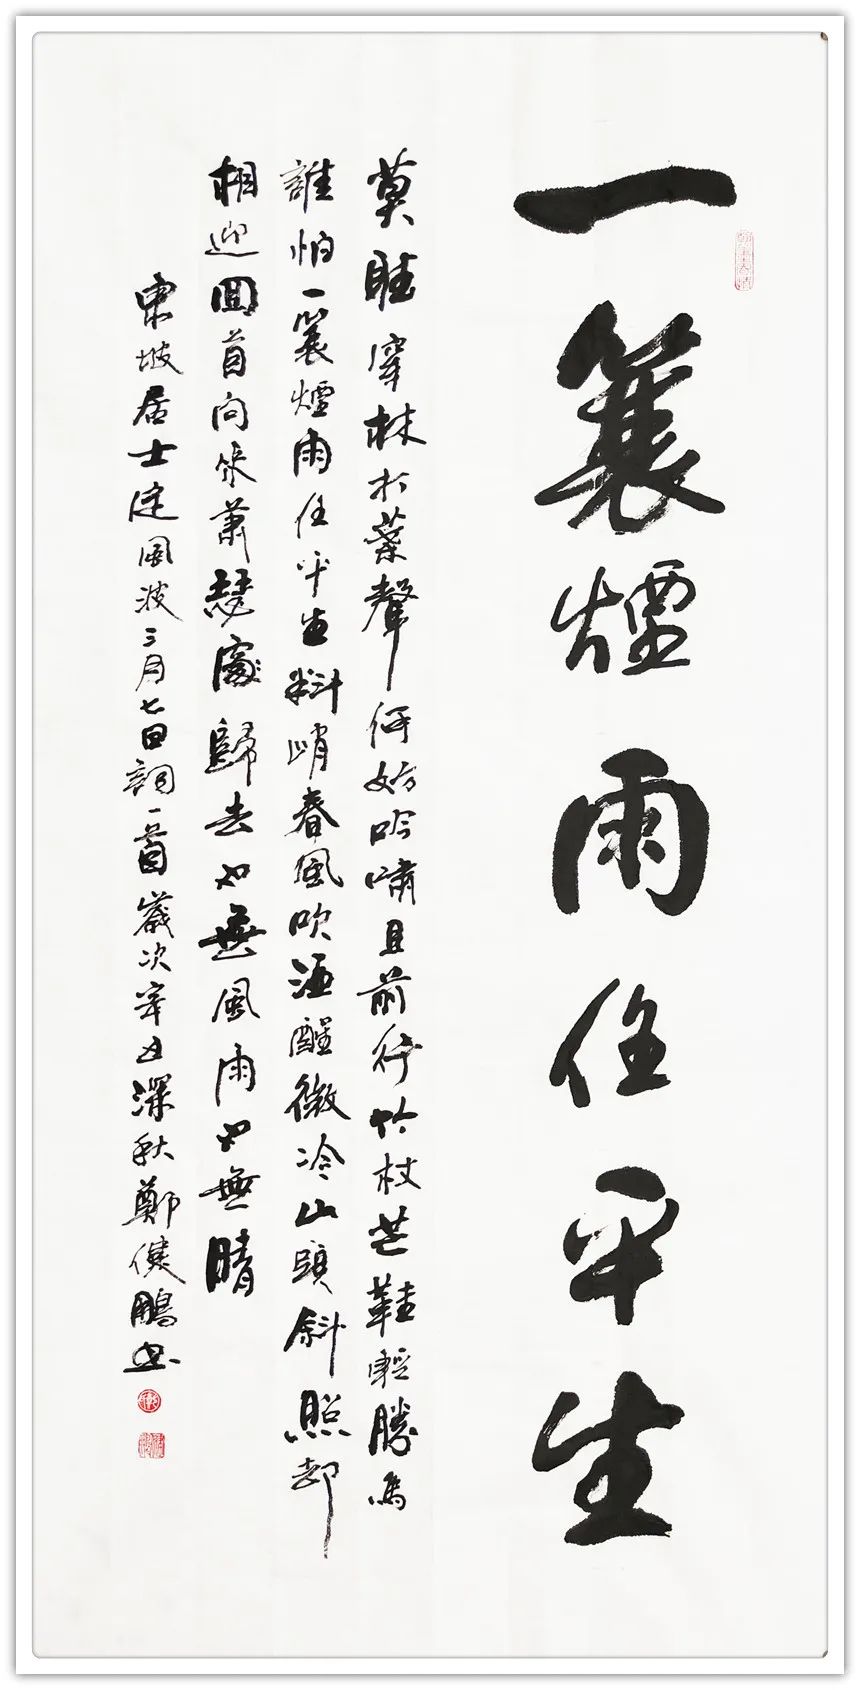 一簑煙雨任平生
莫聽穿林打葉聲何妨吟嘯且前行竹杖芒鞋輕勝馬
誰怕一簑煙雨任平生料峭春風吹酒醒微冷山頭斜照却
相迎回首向來蕭瑟處歸去也無風雨也無晴
東坡居士定風波三月七日詞一首歲次辛丑深秋鄭健鵬書